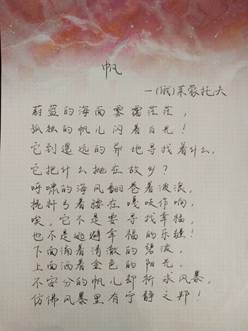 帆
—(俄)莱蒙托夫
蔚蓝的海面雾霭茫茫，
孤独的帆儿闪着白光！
它到遥远的异地寻找着什么，
它把什么抛在故乡？
呼啸的海风翻卷着波浪，
桅杆弓着腰在嘎吱作响，
唉，它不是要寻找幸福，
也不是逃避幸福的乐疆！
下面涌着清澈的碧波，
上面洒着金色的阳光，
不安分的帆儿却祈求风暴，
仿佛风暴里有宁静之邦！